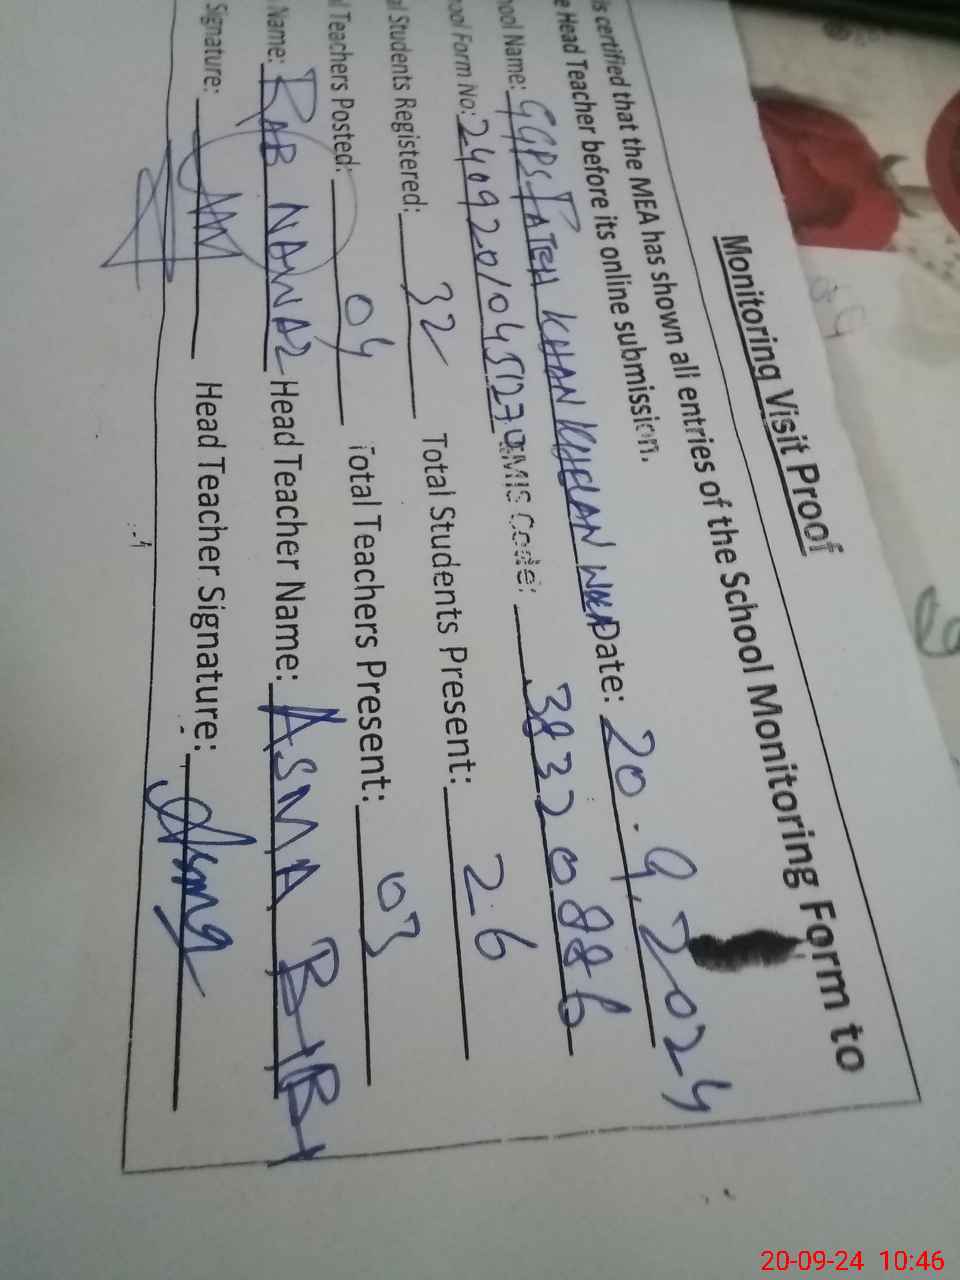 Monitoring Visit Proof
is certified that the MEA has shown all entries of the School Monitoring Form to
e Head Teacher before its online submission.
hool Name: GGPS FATEH KHAN KHELAN WALA Date: 20.9.2024
ool Form No: 240920104512 EMIS Code: 38320886
al Students Registered: 32 Total Students Present: 26
l Teachers Posted: 04 Total Teachers Present: 03
Name: RAB NAWAZ Head Teacher Name: ASMA BIBI
Signature: Head Teacher Signature: Asma
20-09-24 10:46